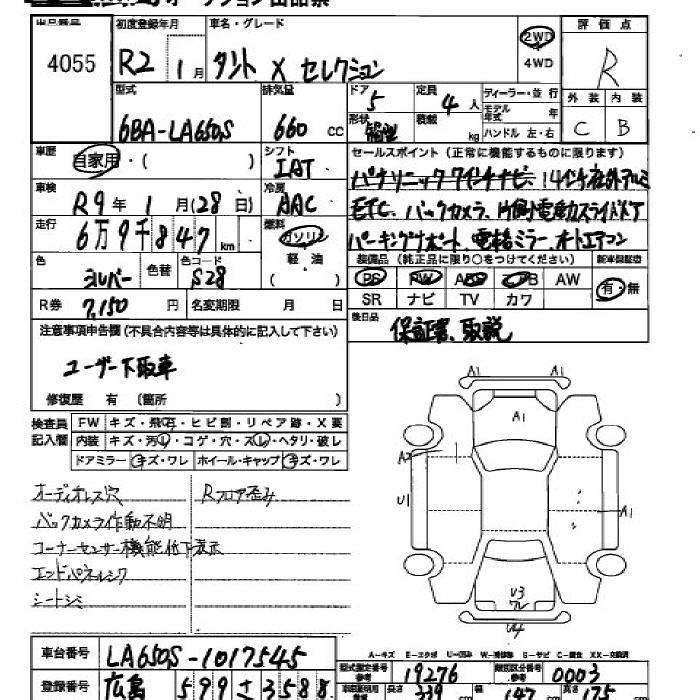 オークション出品票
出品番号 4055
初度登録年月 R2 1月
車名・グレード タント X セレクション
2WD
4WD
評価点 R
外装 C 内装 B
型式 6BA-LA650S
排気量 660 cc
ドア 5
形状 箱型
定員 4人
積載 kg
ディーラー・並行
モデル年式 年
ハンドル 左・右
車歴 自家用・( )
シフト IAT
車検 R9年 1月(28日)
冷房 AAC
走行 6万9千847km
燃料 ガソリン
軽油
( )
色 シルバー 色替
色コード S28
R券 7,150円
名変期限 月 日
セールスポイント(正常に機能するものに限ります)
パナソニック7インチナビ、14インチ社外アルミ
ETC、バックカメラ、片側電動スライドドア
パーキングサポート、電格ミラー、オートエアコン
装備品(純正品に限り○をつけてください)
新車保証書
PS PW ABS エアB AW
SR ナビ TV カワ
有・無
後日品 保証書、取説
注意事項申告欄(不具合内容等は具体的に記入して下さい)
ユーザー下取車
修復歴 有(箇所 )
検査員記入欄
FW キズ・飛石・ヒビ割・リペア跡・X要
内装 キズ・汚レ・コゲ・穴・スレ・ヘタリ・破レ
ドアミラー キズ・ワレ ホイール・キャップ キズ・ワレ
オーディオレス穴
Rフロア歪み
バックカメラ作動不明
コーナーセンサー機能低下表示
エンドパネルシワ
シートシミ
A1 A1
A1
A2
U1
A1
U3
ワレ
U4
A-キズ E-エクボ U-凹み W-補修跡 S-サビ C-腐食 XX-交換済
車台番号 LA650S-1017545
型式指定番号 参考 19276
類別区分番号 参考 0003
登録番号 広島 599 さ 3588
長さ 339 cm 幅 147 cm 175 cm